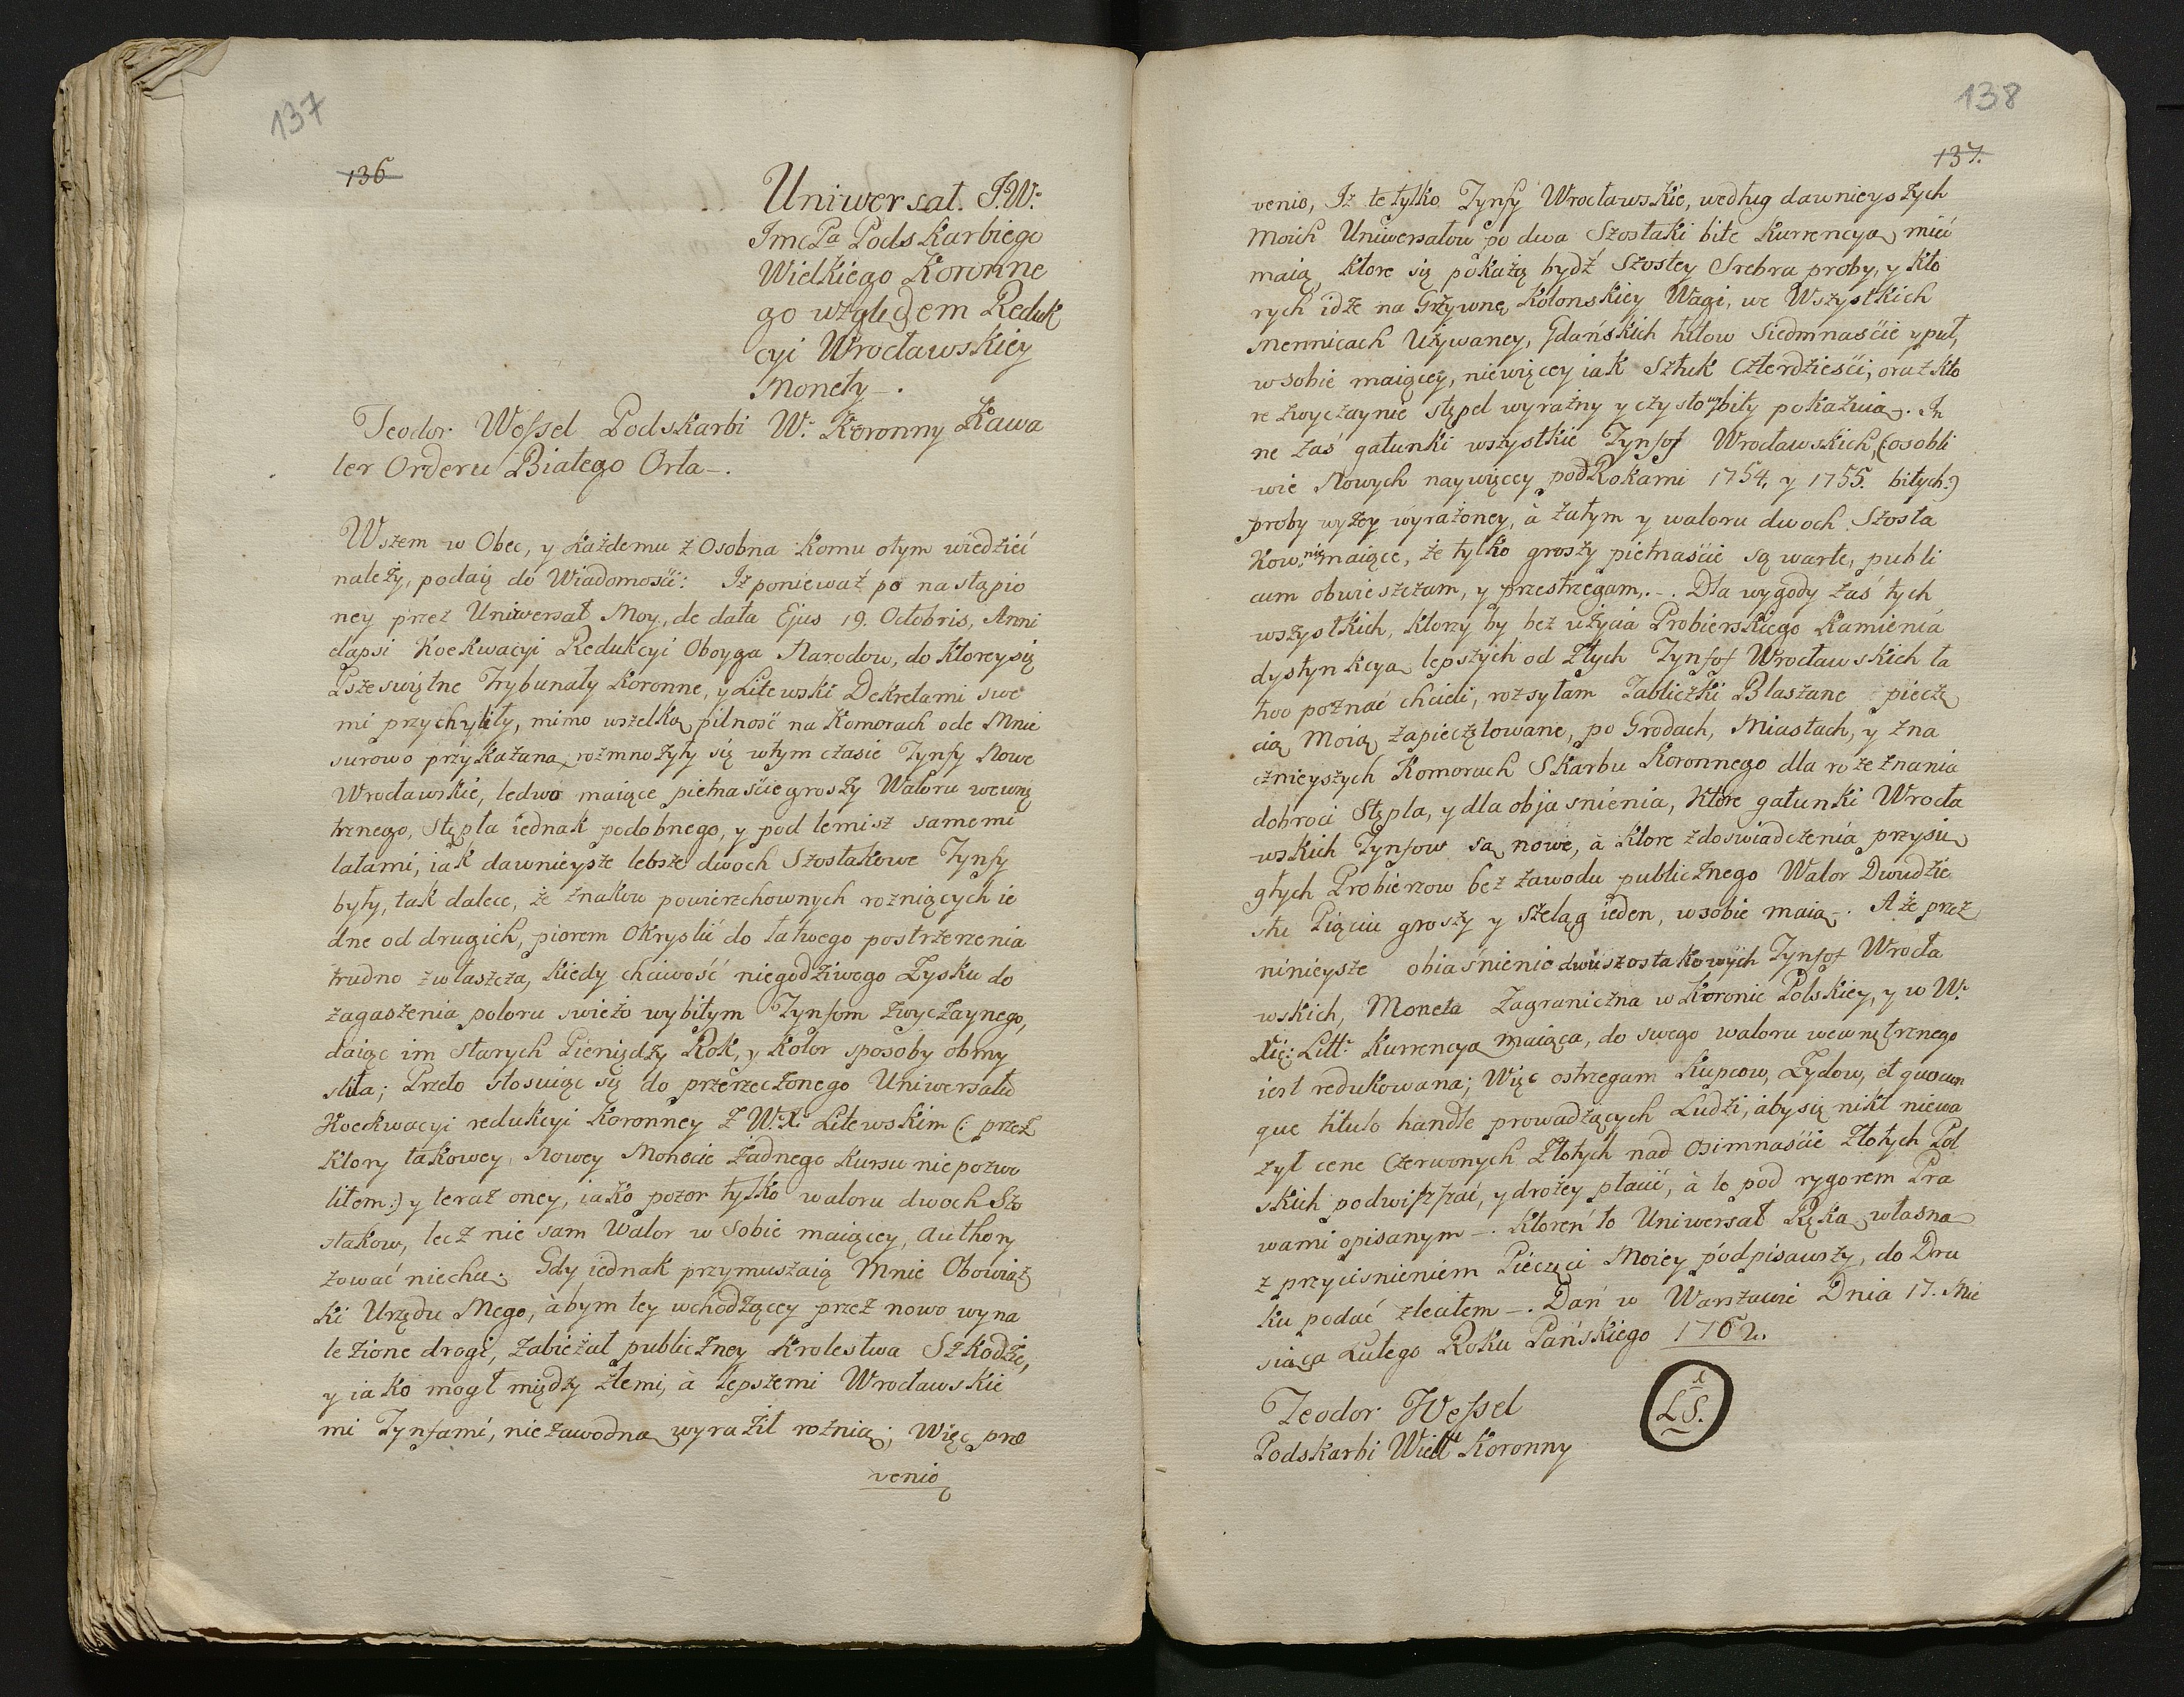 137
136
Uniwersał. J.W.
ImcPa PodsKarbiego
Wielkiego Koronne
go względem Reduk
cyi Wrocławskiey
Monety -.
Teodor Wessel PodsKarbi W. Koronny Kawa
ler Orderu Białego Orła -.
Wszem w Obec, y Każdemu z Osobna Komu otym wiedzieć
należy, podaię do Wiadomości: Iż ponieważ po nastąpio
ney przez Uniwersał Moy, de data Ejus 19. Octobris, Anni
elapsi Koekwacyi Redukcyi Oboyga Narodow, do Ktorey się
Przeświętne Trybunały Koronne, y Litewski Dekretami swe
mi przychyliły, mimo wszelką pilność na Komorach ode Mnie
surowo przykazaną, rozmnożyły się wtym czasie Tynfy Nowe
Wrocławskie, ledwo maiące pietnaście groszy Waloru wewnę
trznego, Stępla iednak podobnego, y pod temisz samemi
latami, iak dawnieysze lebsze dwoch Szostakowe Tynfy
były, tak dalece, że znakow powierzchownych rozniących ie
dne od drugich, piorem Okryslić do łatwego postrzerzenia
trudno zwłaszcza, kiedy chciwość niegodziwego Zysku do
zagaszenia poloru swieżo wybitym Tynfom zwyczaynego,
daiąc im starych Pieniędzy Rok, y Kolor sposoby obmy
śliła; Przeto stosuiąc się do przerzeczonego Uniwersału
Koekwacyi redukcyi Koronney Z W. X. Litewskim (: przez
Ktory takowey Nowey Monecie żadnego Kursu niepozwo
liłem :) y teraz oney, iako pozor tylko waloru dwoch Szo
stakow, lecz nie sam Walor w Sobie maiącey, Authory
zować niechcę. Gdy iednak przymuszaią Mnie Obowiąz
ki Urzędu Mego, abym tey wchodzącey przez nowo wyna
lezione drogi, zabieżał publiczney Krolestwa Szkodzie,
y iako mogł między złemi, à lepszemi Wrocławskie
mi Tynfami, niezawodną wyraził roznią; Więc prę
venio
138
137.
venio, Iż te tylko Tynfy Wrocławskie, według dawnieyszych
Moich Uniwersałow po dwa Szostaki bite Kurrencyą mieć
maią, Ktore się pokażą bydź Szostey Srebra proby, y Kto
rych idzie na Grzywnę Kolonskiey Wagi, we Wszystkich
Mennicach Używaney, Gdańskich łutow Siedmnaście y puł,
w sobie maiącey, niewięcey iak Sztuk Czterdzieści, oraz Kto
re zwyczaynie stępel wyraźny y czysto wybity pokazuią. In
ne zaś gatunki wszystkie Tynfof Wrocławskich, (: osobli
wie Nowych naywięcey pod Rokami 1754. y 1755. bitych :)
proby wyżey wyrażoney, à zatym y waloru dwoch Szosta
Kow, nie maiące, że tylko groszy pietnaście są warte, publi
cum obwieszczam, y przestrzegam. -. Dla wygody zaś tych
wszystkich, Ktorzy by bez użycia Probierskiego Kamienia
dystynkcyą lepszych od złych Tynfof Wrocławskich ła
two poznać chcieli, rozsyłam Tabliczki Blaszane pieczę
cią Moią zapieczętowane, po Grodach, Miastach, y zna
cznieyszych Komorach Skarbu Koronnego dla rozeznania
dobroci Stępla, y dla objasnienia, Ktore gatunki Wrocła
wskich Tynfow są nowe, à ktore z doswiadczenia przysię
głych Probierzow bez zawodu publicznego Walor Dwudzie
stu Pięciu groszy y szeląg ieden, wsobie maią -. A że przez
ninieysze obiaśnienie dwuszostakowych Tynfof Wrocła
wskich, Moneta Zagraniczna w Koronie Polskiey, y w W.
Xię: Litt: Kurrencyą maiąca, do swego waloru wewnętrznego
iest redukowana; Więc ostrzegam Kupcow, Zydow, et quocun
que titulo handle prowadzących Ludzi, aby się nikt nieważ
zył cene Czerwonych Złotych nad Osimnaście Złotych Pol
skich podwiszszać, y drożey płacić, à to pod rygorem Pra
wami opisanym -. Ktoreń to Uniwersał Ręką własną
z przycisnieniem Pieczęci Moiey podpisawszy, do Dru
ku podać zleciłem -. Dań w Warszawie Dnia 17. Mie
siąca Lutego Roku Pańskiego 1762.
Teodor Wessel
Podskarbi Wielk Koronny
L.S.